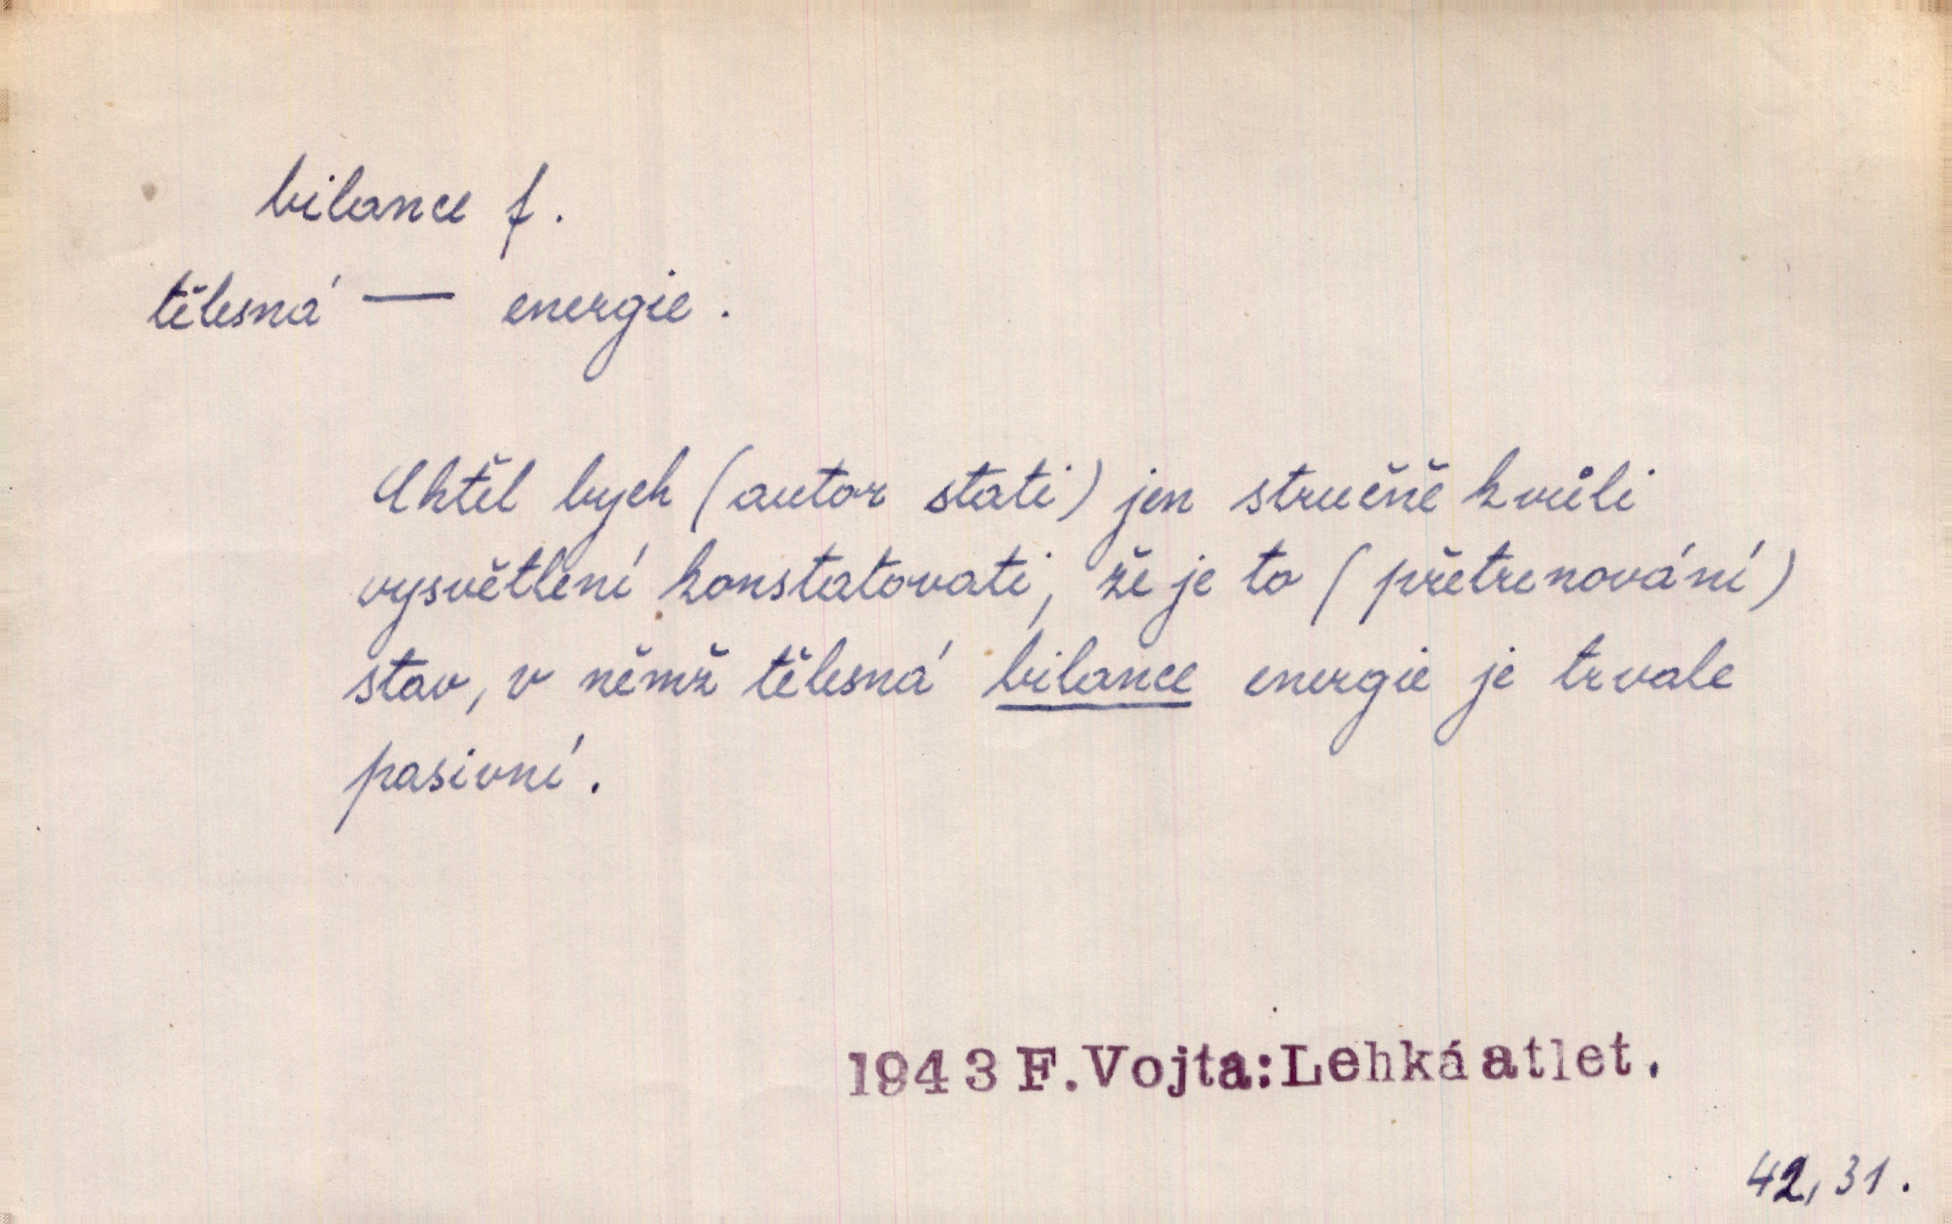 bilance f.
tělesná — energie.
Chtěl bych (autor stati) jen stručně kvůli
vysvětlení konstatovati, že je to (přetrenování)
stav, v němž tělesná bilance energie je trvale
pasivní.
1943 F.Vojta:Lehká atlet.
42,31.